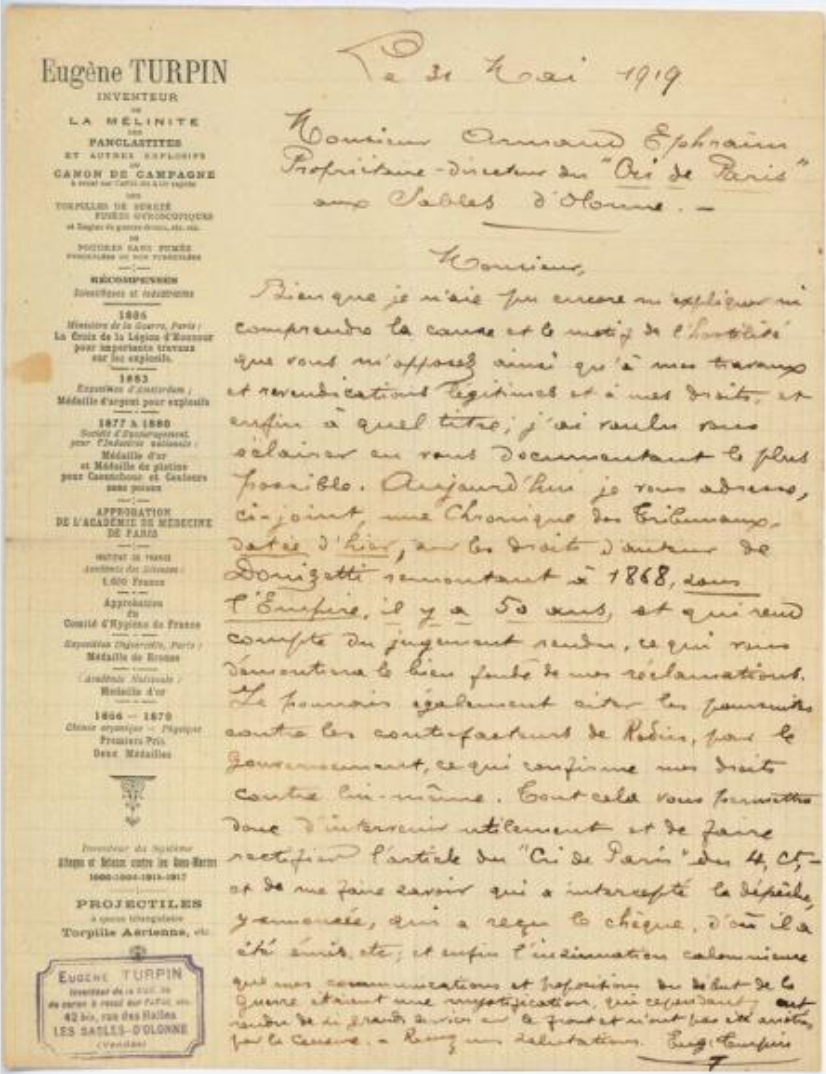 Eugène TURPIN
INVENTEUR
DE
LA MÉLINITE
DES
PANCLASTITES
ET AUTRES EXPLOSIFS
DU
CANON DE CAMPAGNE
DES
TORPILLES DE SURETÉ
FUSÉES GYROSCOPIQUES
et Engins de guerre divers, etc. etc.
DE
POUDRES SANS FUMÉE
RÉCOMPENSES
Scientifiques et industrielles
1886
Ministère de la Guerre, Paris :
La Croix de la Légion d'Honneur
pour importants travaux
sur les explosifs.
1883
Exposition d'Amsterdam :
Médaille d'argent pour explosifs
1877 à 1880
Société d'Encouragement
pour l'Industrie nationale :
Médaille d'or
et Médaille de platine
pour Caoutchouc et Couleurs
sans poison
APPROBATION
DE L'ACADÉMIE DE MÉDECINE
DE PARIS
INSTITUT DE FRANCE
Académie des Sciences :
Francs
Approbation
du
Comité d'Hygiène de France
Exposition Universelle, Paris :
Médaille de Bronze
(Académie Nationale) :
Médaille d'or
1866 — 1870
Chimie organique — Physique
Premiers Prix
Deux Médailles
Inventeur du Système
Attaque et Défense contre les Sous-Marins
PROJECTILES
à queue
Torpille Aérienne, etc.
EUGÈNE TURPIN
Inventeur de la
du canon à recul sur l'affût, etc.
42 bis, rue des Halles
LES SABLES-D'OLONNE
(Vendée)
Le 31 Mai 1919
Monsieur Armand Ephraïm
Propriétaire-directeur du "Cri de Paris"
aux Sables d'Olonne. —
Monsieur,
Bien que je n'aie pu encore m'expliquer ni
comprendre la cause et le motif de l'hostilité
que vous m'opposez ainsi qu'à mes travaux
et revendications légitimes et à mes droits, et
enfin à quel titre; j'ai voulu vous
éclairer en vous documentant le plus
possible. Aujourd'hui je vous adresse,
ci-joint, une Chronique des Tribunaux,
datée d'hier, sur les droits d'auteur de
Donizetti remontant à 1868, sous
l'Empire, il y a 50 ans, et qui rend
compte du jugement rendu, ce qui vous
démontrera le bien fondé de mes réclamations.
Je pourrais également citer les poursuites
contre les contrefacteurs de Rodin, par le
Gouvernement, ce qui confirme mes droits
contre lui-même. Tout cela vous permettra
donc d'intervenir utilement et de faire
rectifier l'article du "Cri de Paris" du 4, Ct, —
et de me faire savoir qui a intercepté la dépêche,
y annoncée, qui a reçu le chèque, d'où il a
été émis, etc; et enfin l'insinuation calomnieuse
que mes communications et propositions du début de la
guerre étaient une mystification, qui cependant, ont
rendu de si grands services sur le front et n'ont pas été arrêtés
par la Censure. — Recevez mes salutations. Eug. Turpin